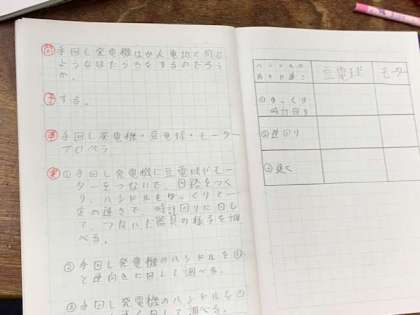 問 手回し発電機はかん電池と同じ
ようなはたらきをするのだろう
か。
予 する。
準 手回し発電機・豆電球・モーター
プロペラ
実 ① 手回し発電機に豆電球やモ
ーターをつないで、回路をつく
り、ハンドルをゆっくりと一
定の速さで、時計回りに回し
て、つないだ器具の様子を調
べる。
② 手回し発電機のハンドルを①
と逆向きに回して調べる。
③ 手回し発電機のハンドルを①
速く回して調べる。
ハンドルの
豆電球
モーター
①ゆっくり
時計回り
②逆回り
③速く